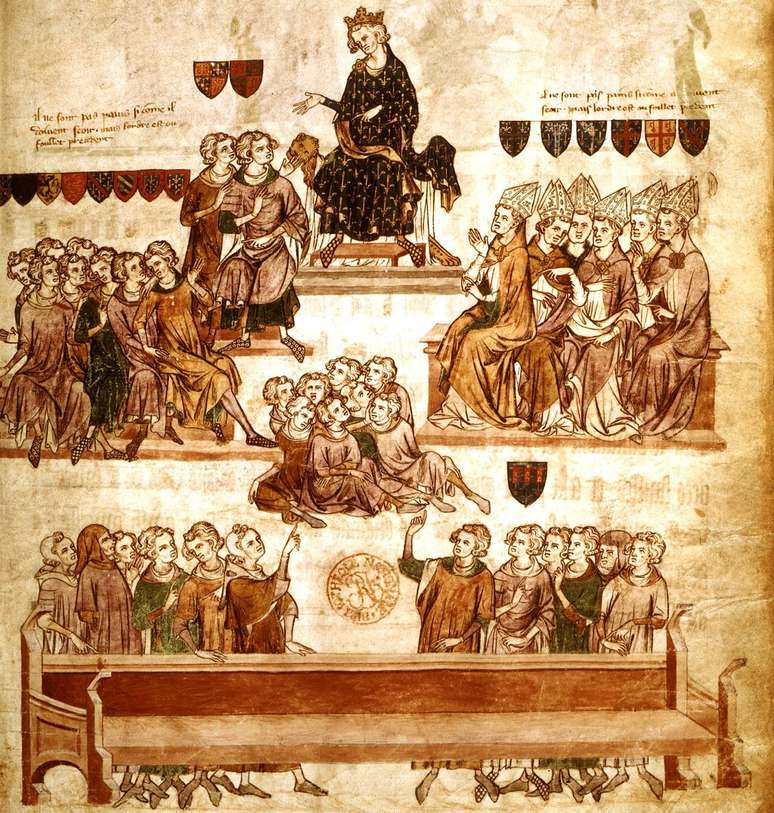 il ne sont pas pains si come il
doivent seoir . mais lordre est ou
foillet precedent .
il ne sont pas pains si come il doivent
seoir . mais lordre est ou foillet precedent